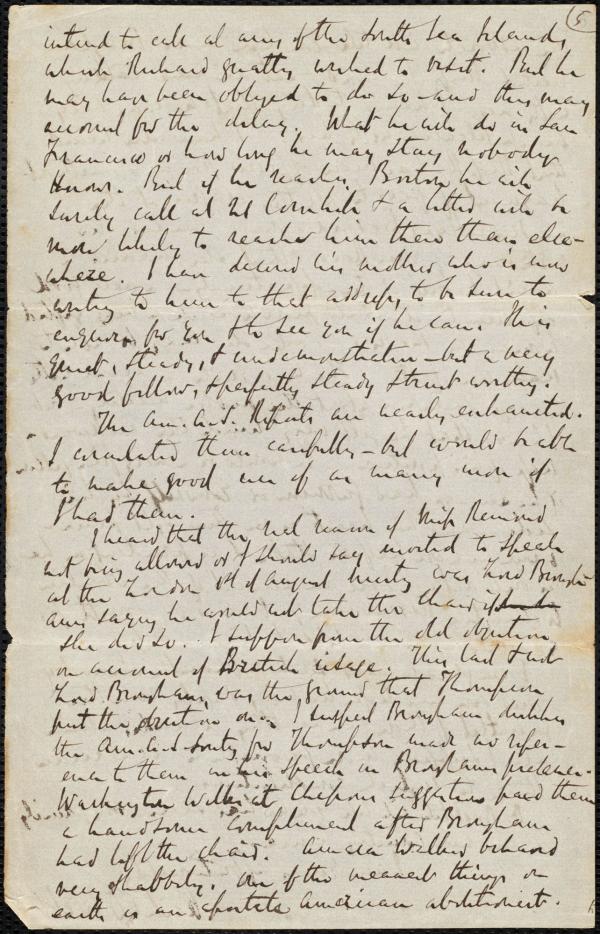 (5)
intend to call at any of the South Sea Islands,
which Richard greatly wished to visit. But he
may have been obliged to do so - and this may
account for the delay. What he will do in San
Francisco or how long he may stay nobody
knows. But if he reaches Boston he will
surely call at 21 Cornhill & a letter will be
more likely to reach him there than else-
where. I have desired his mother who is now
writing to him to that address, to be sure to
enquire for you & to see you if he can. He is
quiet, steady, & undemonstrative - but a very
good fellow, & perfectly steady & trustworthy.
The Am. A.S. Reports are nearly exhausted.
I circulated them carefully - but would be able
to make good use of as many more if
I had them.
I heard that the real reason of Miss Remond
not being allowed or I should say invited to speak
at the London 1st of August meeting was Lord Brougham
saying he would not take the chair if
she did so. I suppose from the old objection
on account of British usage. This last & not
Lord Brougham, was the ground that Thompson
put the objection on. I suspect Brougham dislikes
the Am. A.S. Society for Thompson made no refer-
ence to them in his speech in Brougham's presence.
Washington Wilks at Chesson's suggestion paid them
a handsome compliment after Brougham
had left the chair. Amasa Walker behaved
very shabbily. One of the meanest things on
earth is an apostate American abolitionist.